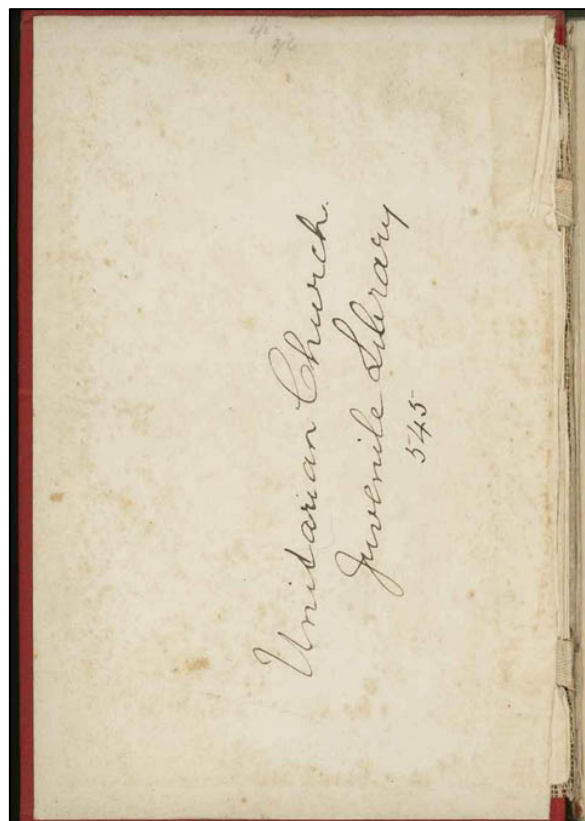 Unitarian Church.
Juvenile Library
545